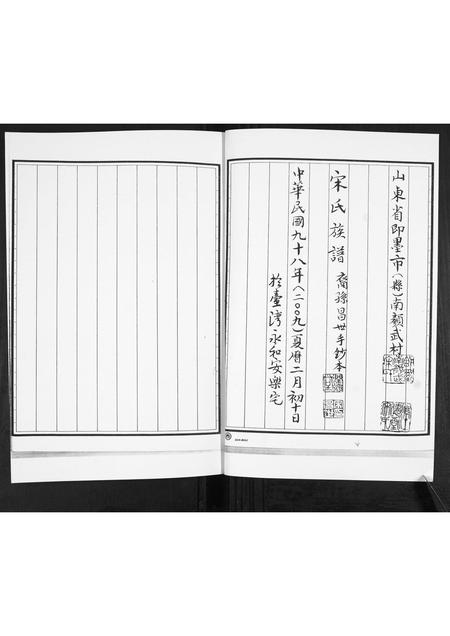 山東省即墨市(縣)南顏武村
宋氏族譜 裔孫昌世手鈔本
中華民國九十八年(二〇〇九)夏曆二月初十日
於臺灣永和安樂宅